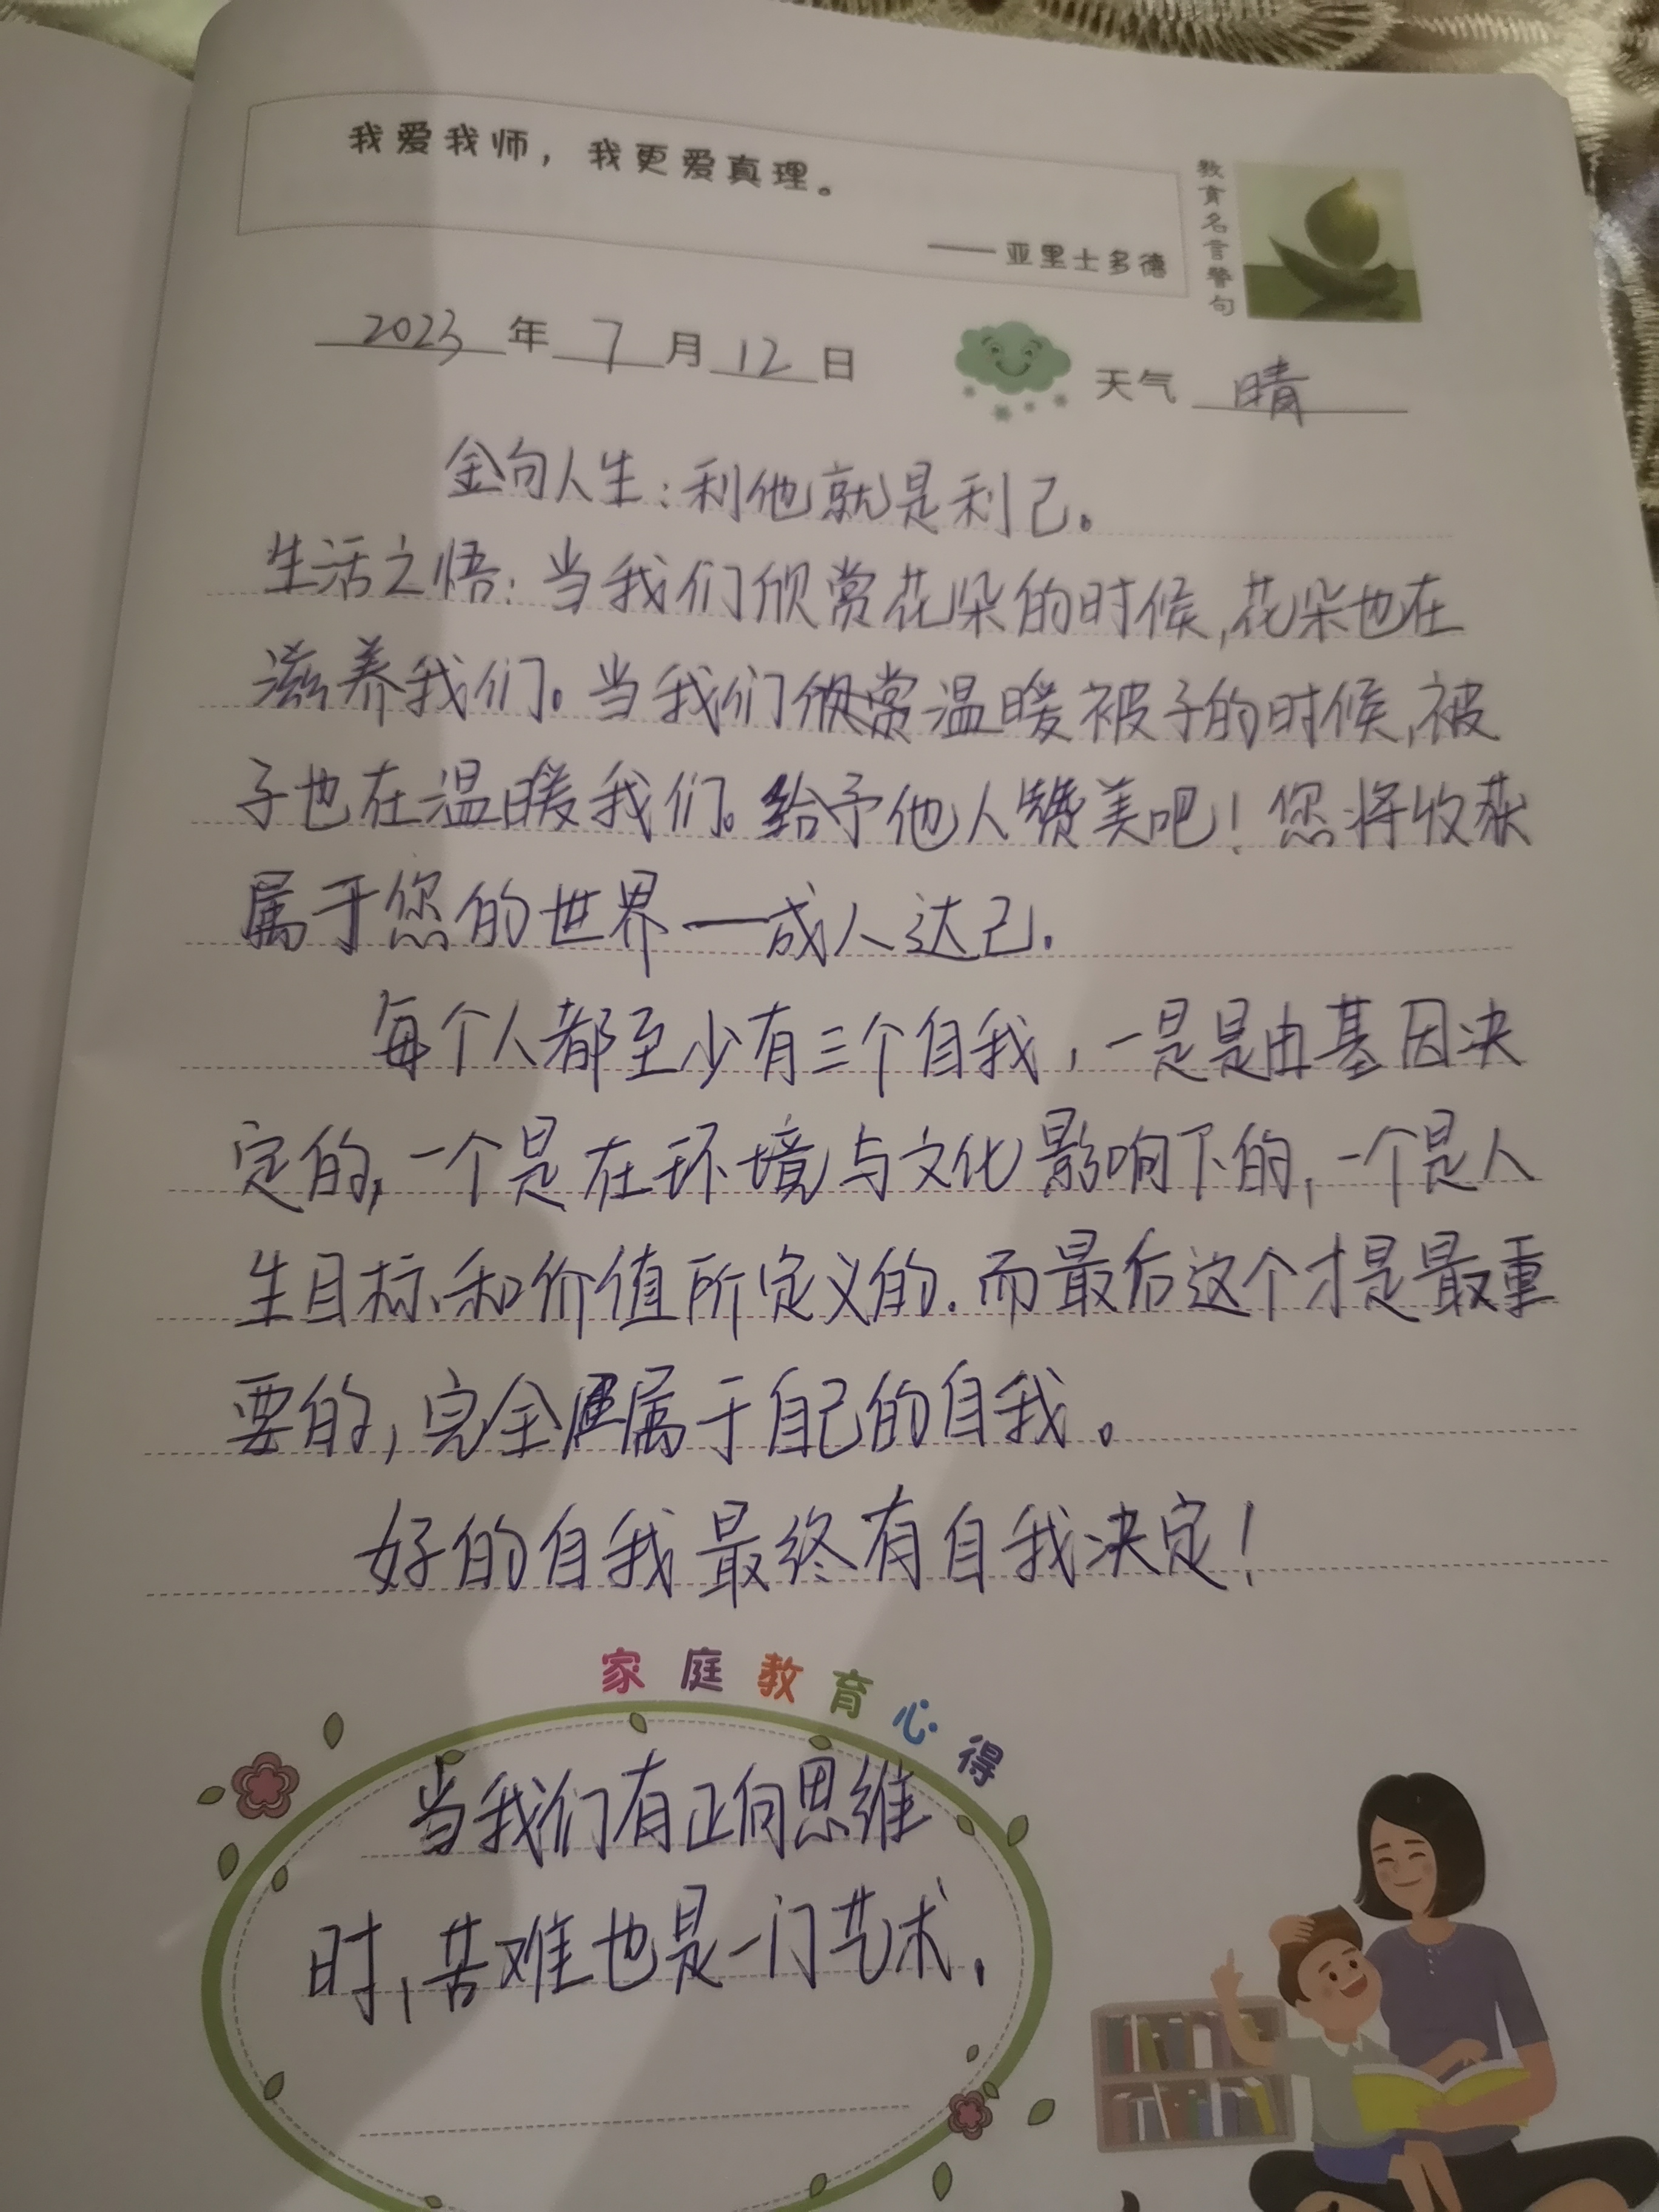 我爱我师，我更爱真理。
——亚里士多德
教育名言警句
2023年7月12日
天气 晴
金句人生：利他就是利己。
生活之悟：当我们欣赏花朵的时候，花朵也在
滋养我们。当我们欣赏温暖被子的时候，被
子也在温暖我们。给予他人赞美吧！您将收获
属于您的世界——成人达己.
每个人都至少有三个自我，一是是由基因决
定的，一个是在环境与文化影响下的，一个是人
生目标、和价值所定义的.而最后这个才是最重
要的，完全属于自己的自我。
好的自我最终有自我决定！
家庭教育心得
当我们有正向思维
时，苦难也是一门艺术.